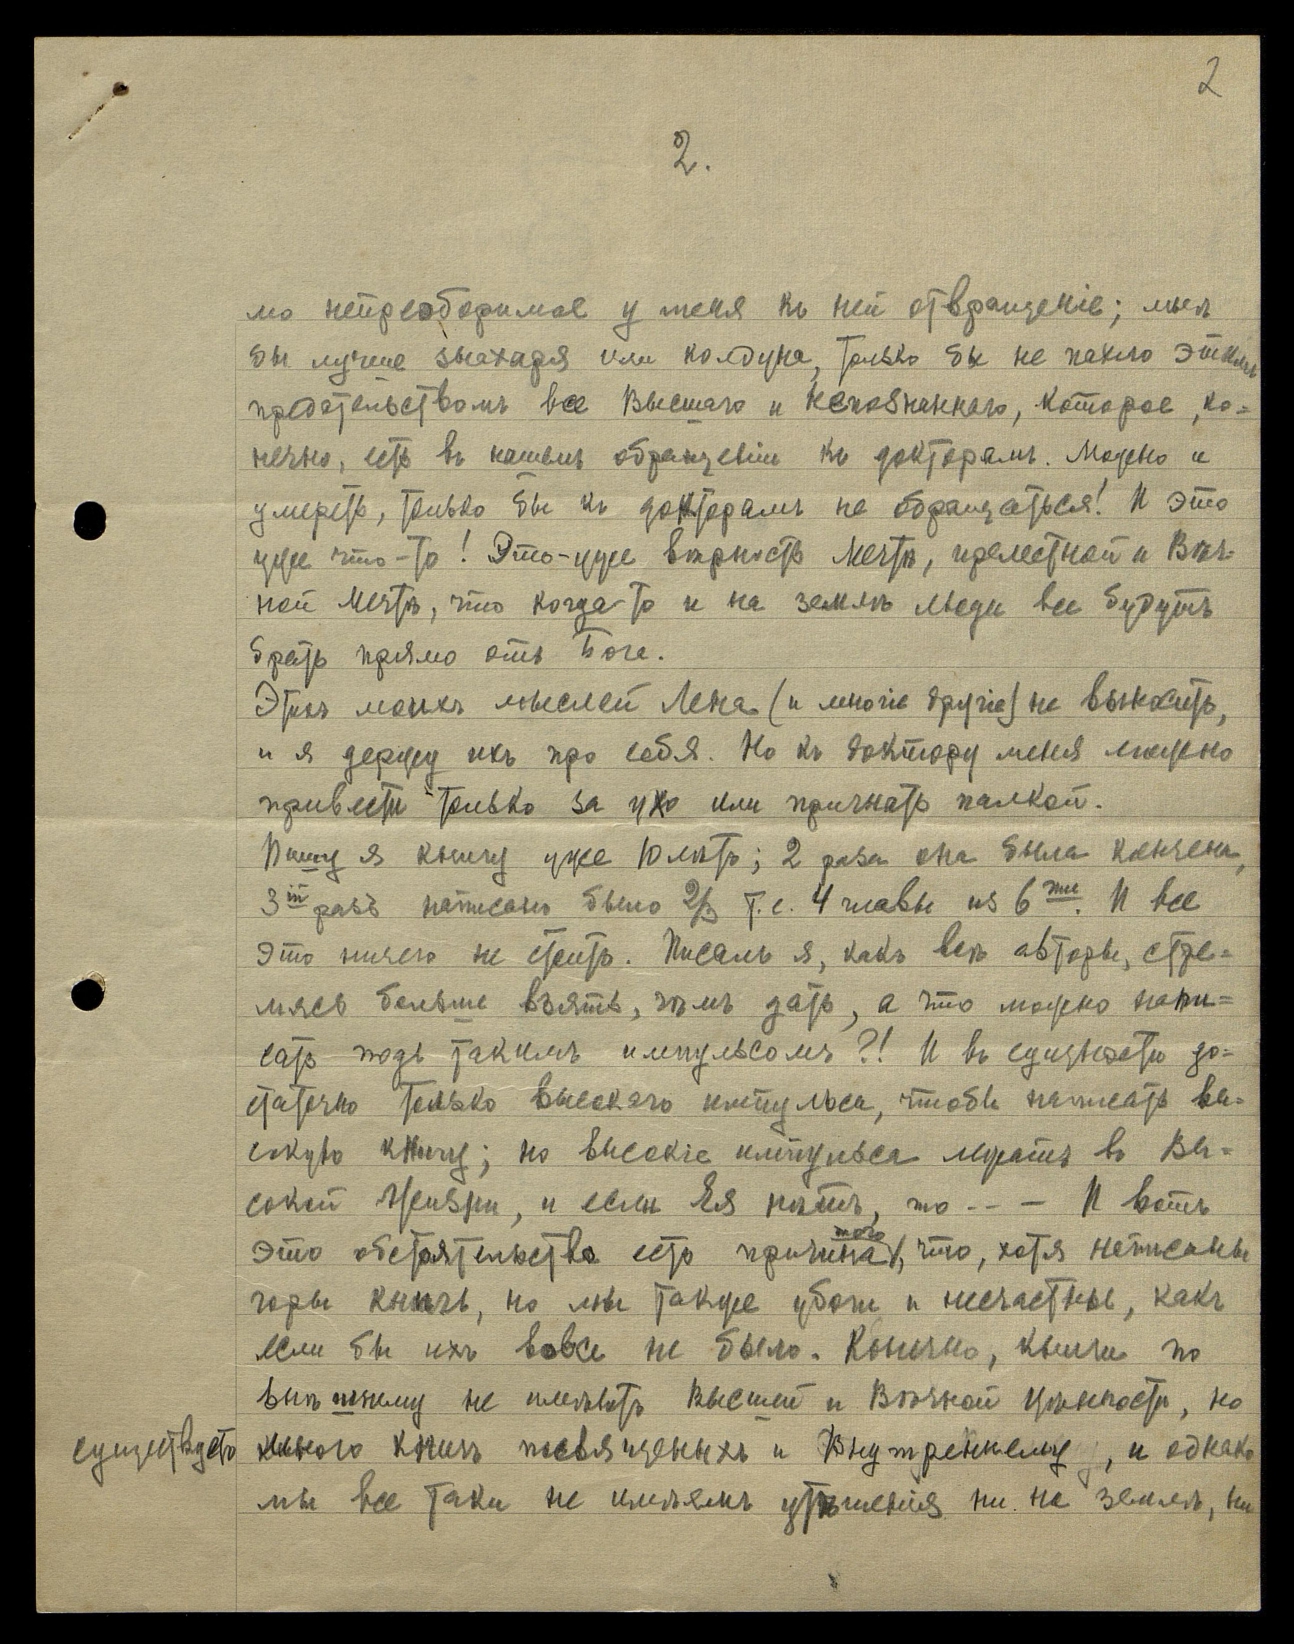 2
2.
мо непреоборимое у меня къ ней отвращенiе; мнѣ
бы лучше знахаря или колдуна, только бы не пахло этимъ
предательствомъ все Высшаго и Непознаннаго, которое, ко=
нечно, есть въ нашемъ обращенiи къ докторамъ. Можно и
умереть, только бы къ докторамъ не обращаться! И это
уже что-то! Это-уже вѣрность Мечтѣ, прелестной и Вѣч-
ной Мечтѣ, что когда-то и на землѣ люди все будутъ
брать прямо отъ Бога.
Этихъ моихъ мыслей Лена (и многiе другiе) не выноситъ,
и я держу ихъ про себя. Но къ доктору меня можно
привести только за ухо или пригнать палкой.
Пишу я книгу уже 10 лѣтъ; 2 раза она была кончена,
3iй разъ написано было 2/3 т.е. 4 главы из 6ти. И все
это ничего не стоитъ. Писалъ я, какъ всѣ авторы, стре=
мясь больше взять, чѣмъ дать, а что можно напи=
сать подъ такимъ импульсомъ?! И въ сущности до=
статочно только высокаго импульса, чтобы написать вы=
сокую книгу; но высокiе импульса лежатъ въ Вы=
сокой Жизни, и если Ея нѣтъ, то - - — И вотъ
это обстоятельство есть причина того, что, хотя написаны
горы книгъ, но мы также убоги и несчастны, какъ
если бы ихъ вовсе не было. Конечно, книги по
внѣшнему не имѣютъ Высшей и Вѣчной Цѣнности, но
существуетъ много книгъ посвященыхъ и Внутреннему, и однако
мы все таки не имѣемъ утѣшенiя ни на землѣ, ни